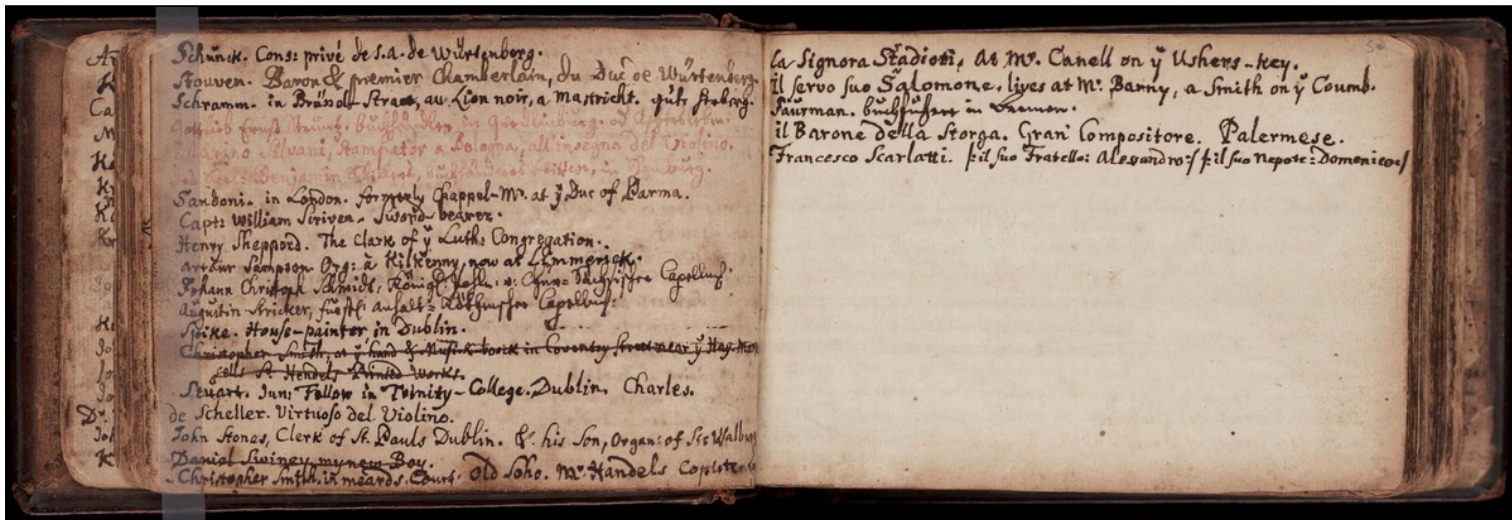 Schunck. Cons: privé de s.a. de Würtenberg.
Stouven. Baron & premier Chamberlain, du Duc de Würtenberg.
Schramm. in Brändl-Straet, au Lion noir, a Mastricht.
Gottlieb Ernst buchhändler in Quedlinburg
Silvani, Stampator a Bologna, all'insegna del Violino.
Benjamin in Hamburg.
Sandoni. in London. formerly Chappel-Mr. at ÿ Duc of Parma.
Capt: William Scriven. Sword-bearer.
Henry Sheppord. The Clark of ÿ Luth: Congregation.
Artaur Sampson. Org: à Kilkenny, now at Limmerick.
Johann Christoph Schmidt, Königl: Pohln: u: Sächsischer Capellm:
Augustin Stricker, fürstl: anhalt= Köthenscher Capellm:
Spike. House-painter in Dublin.
Christopher Smith, at ÿ hand & Musick book in Coventry Street near ÿ Hay-Mar
sells Sr. Hendels Printed Works.
Stuart. Jun: Fellow in Trinity-College. Dublin. Charles.
de Scheller. Virtuoso del Violino.
John Stones, Clerk of St. Pauls Dublin. &. his Son, Organ: of
Daniel Swiney, my new Boy.
Christopher Smith. in meards. Court. Old Soho. Mr. Handels Copiste
la Signora Stadioti, at Mr. Canell on ÿ Ushers-key.
il servo suo Salomone. lives at Mr. Barny, a Smith on ÿ Coumb.
Saurman. buchführer in Bremen.
il Barone della Storga. Gran Compositore. Palermese.
Francesco Scarlatti. /:il suo Fratello: Alessandro:/ /:il suo Nepote: Domenico:/